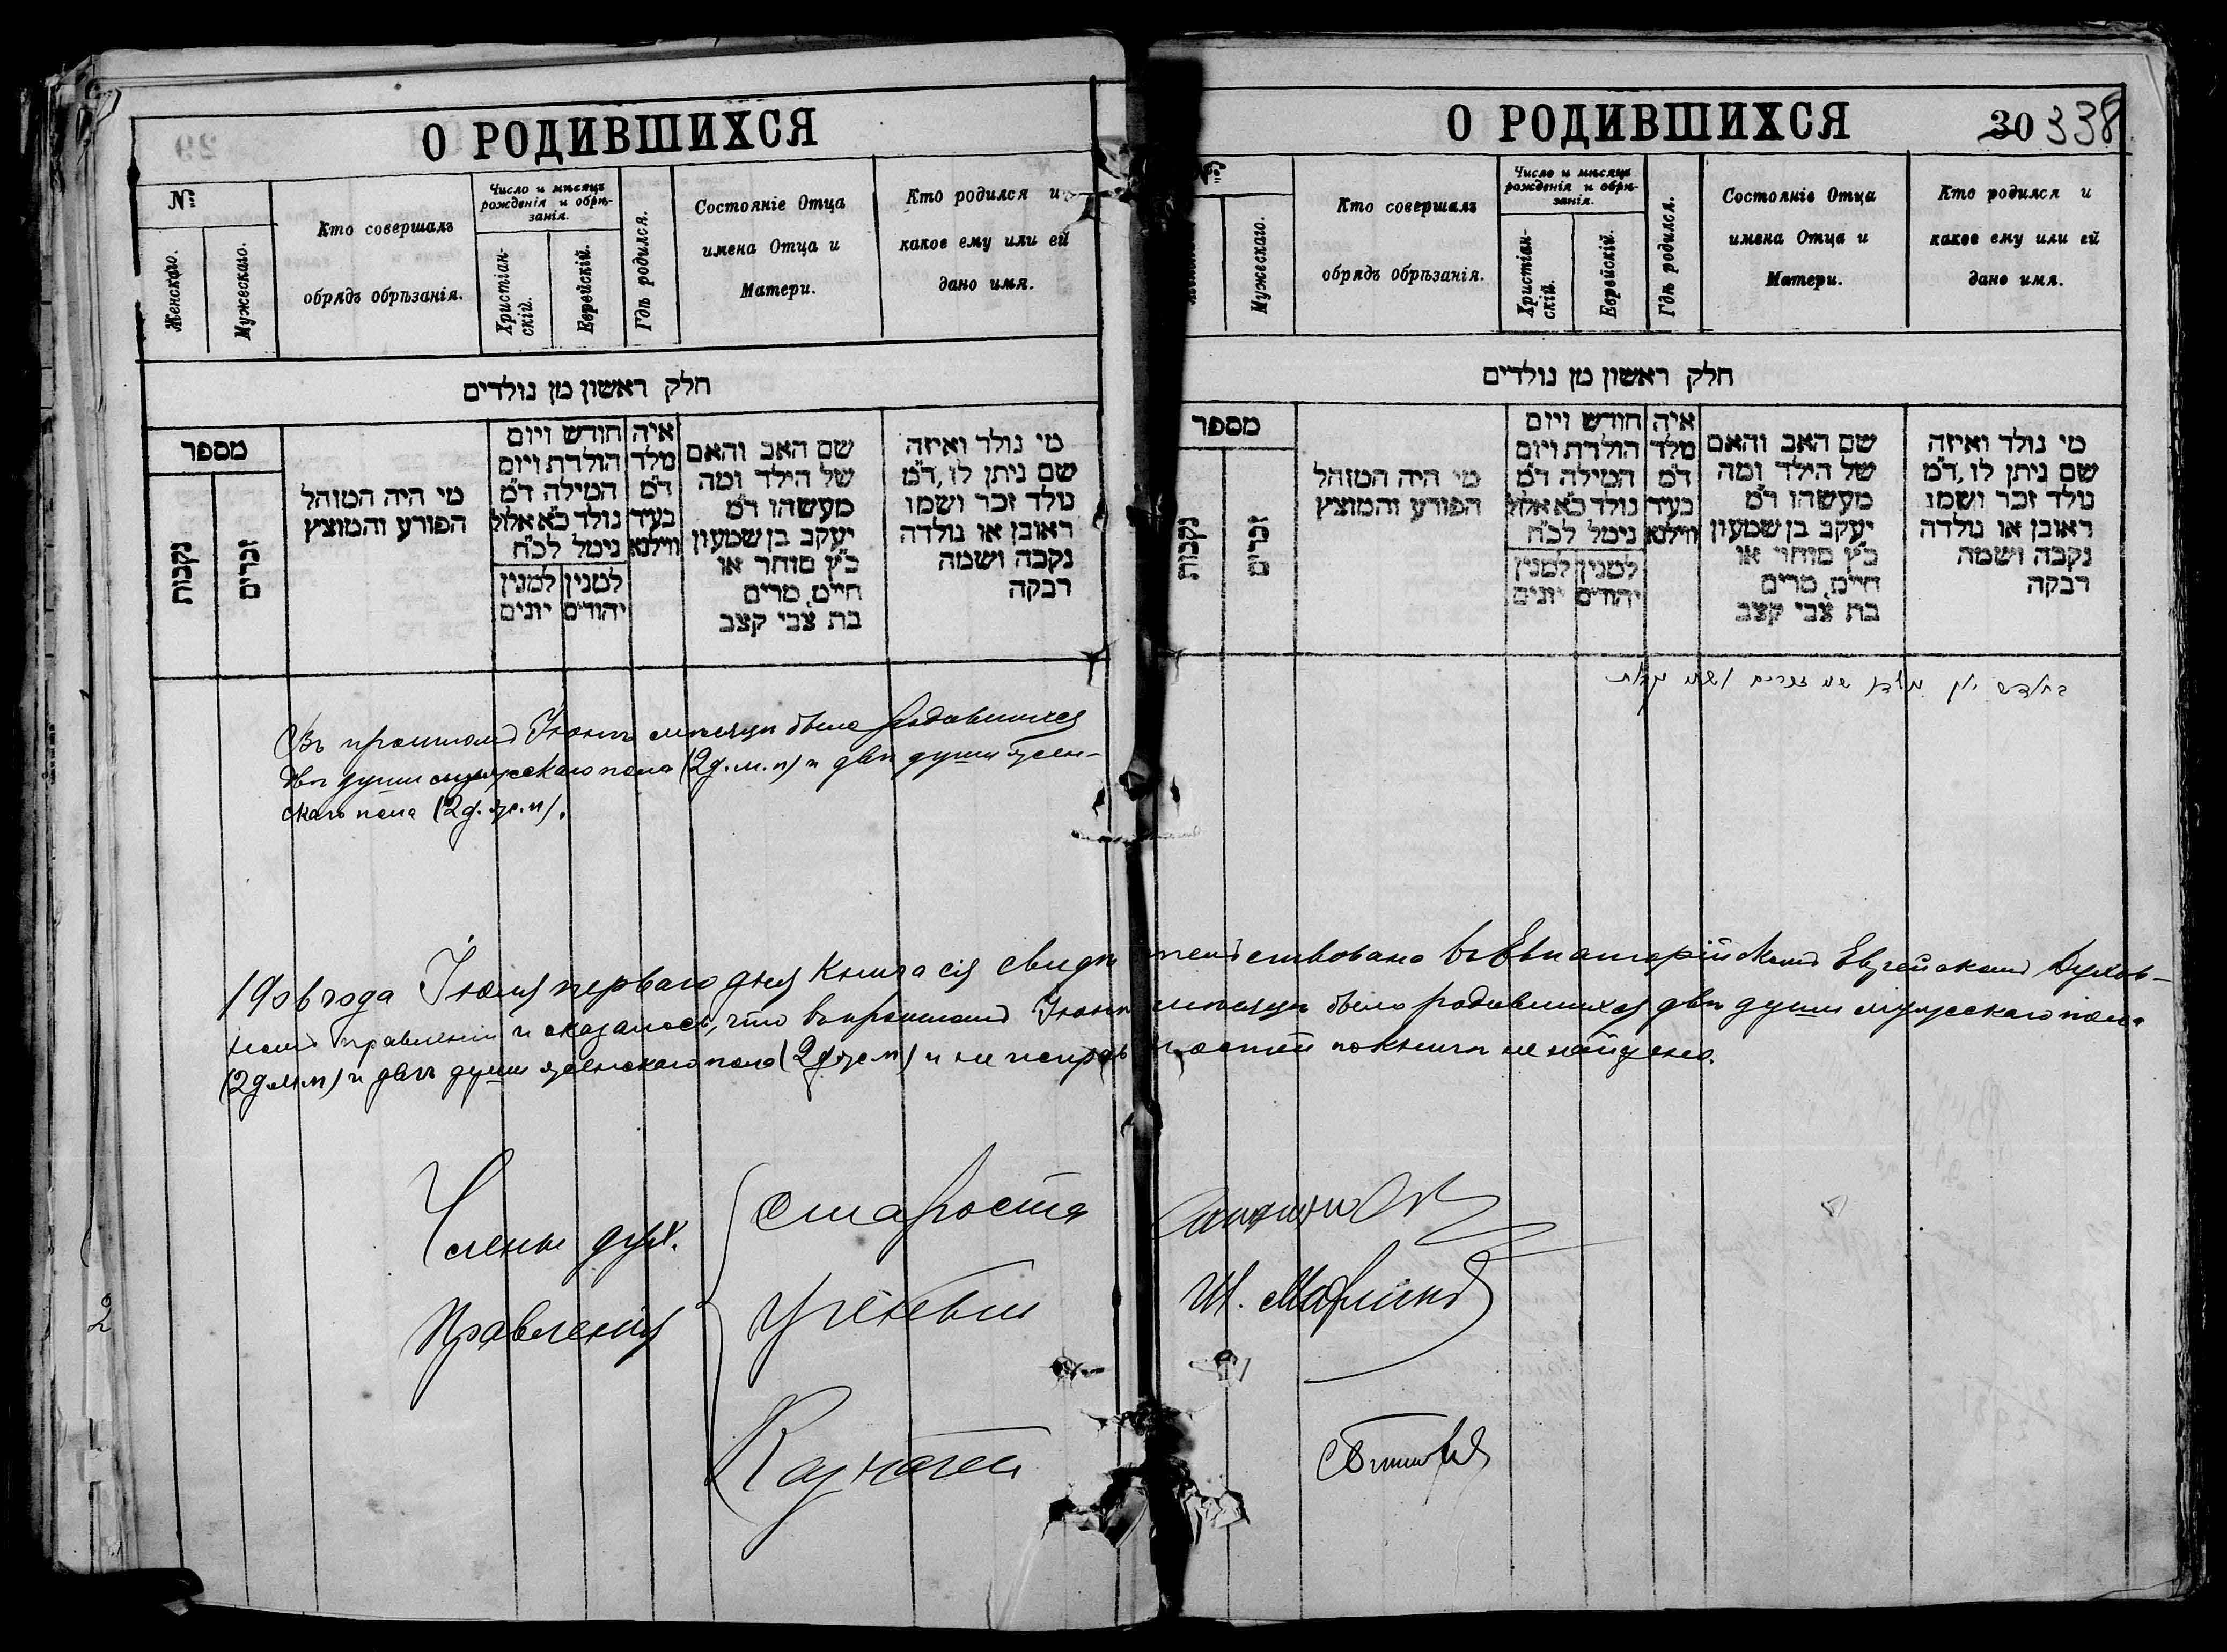 О РОДИВШИХСЯ
№
Женскаго.
Мужескаго.
Кто совершалъ
обрядъ обрѣзанія.
Число и мѣсяцъ
рожденія и обрѣ-
занія.
Христіан-
скій.
Еврейскій.
Гдѣ родился.
Состояніе Отца
имена Отца и
Матери.
Кто родился и
какое ему или ей
дано имя.
חלק ראשון מן נולדים
מספר
נקבות
זכרים
מי היה המוהל
הפורע והמוצץ
חודש ויום
הולדת ויום
המילה ד״מ
נולד כ״א אלול
נימל לכ״ח
למנין יהודים
למנין יונים
איה
מלד
ד״מ
בעיר
ווילנא
שם האב והאם
של הילד ומה
מעשהו ד״מ
יעקב בן שמעון
כ״ץ סוחר או
חייט, מרים
בת צבי קצב
מי נולד ואיזה
שם ניתן לו, ד״מ
נולד זכר ושמו
ראובן או נולדה
נקבה ושמה
רבקה
Въ прошломъ Іюнѣ мѣсяцѣ было родившихся
двѣ души мужескаго пола (2 д. м. п) и двѣ души жен-
скаго пола (2 д. ж. п).
2
О РОДИВШИХСЯ
30 338
№
Мужескаго.
Кто совершалъ
обрядъ обрѣзанія.
Число и мѣсяцъ
рожденія и обрѣ-
занія.
Христіан-
скій.
Еврейскій.
Гдѣ родился.
Состояніе Отца
имена Отца и
Матери.
Кто родился и
какое ему или ей
дано имя.
חלק ראשון מן נולדים
מספר
נקבות
זכרים
מי היה המוהל
הפורע והמוצץ
חודש ויום
הולדת ויום
המילה ד״מ
נולד כ״א אלול
נימל לכ״ח
למנין יהודים
למנין יונים
איה
מלד
ד״מ
בעיר
ווילנא
שם האב והאם
של הילד ומה
מעשהו ד״מ
יעקב בן שמעון
כ״ץ סוחר או
חייט, מרים
בת צבי קצב
מי נולד ואיזה
שם ניתן לו, ד״מ
נולד זכר ושמו
ראובן או נולדה
נקבה ושמה
רבקה
1906 года Іюля перваго дня книга сія свидѣтельствована въ Евпаторійскомъ Еврейскомъ Духов-
номъ правленіи и оказалось, что въ прошломъ Іюнѣ мѣсяцѣ было родившихся двѣ души мужескаго пола
(2 д м п) и двѣ души женскаго пола (2 д ж п) и неисправностей по книгѣ не найдено.
Члены дух.
Правленія
Староста
Ученый
Казначей